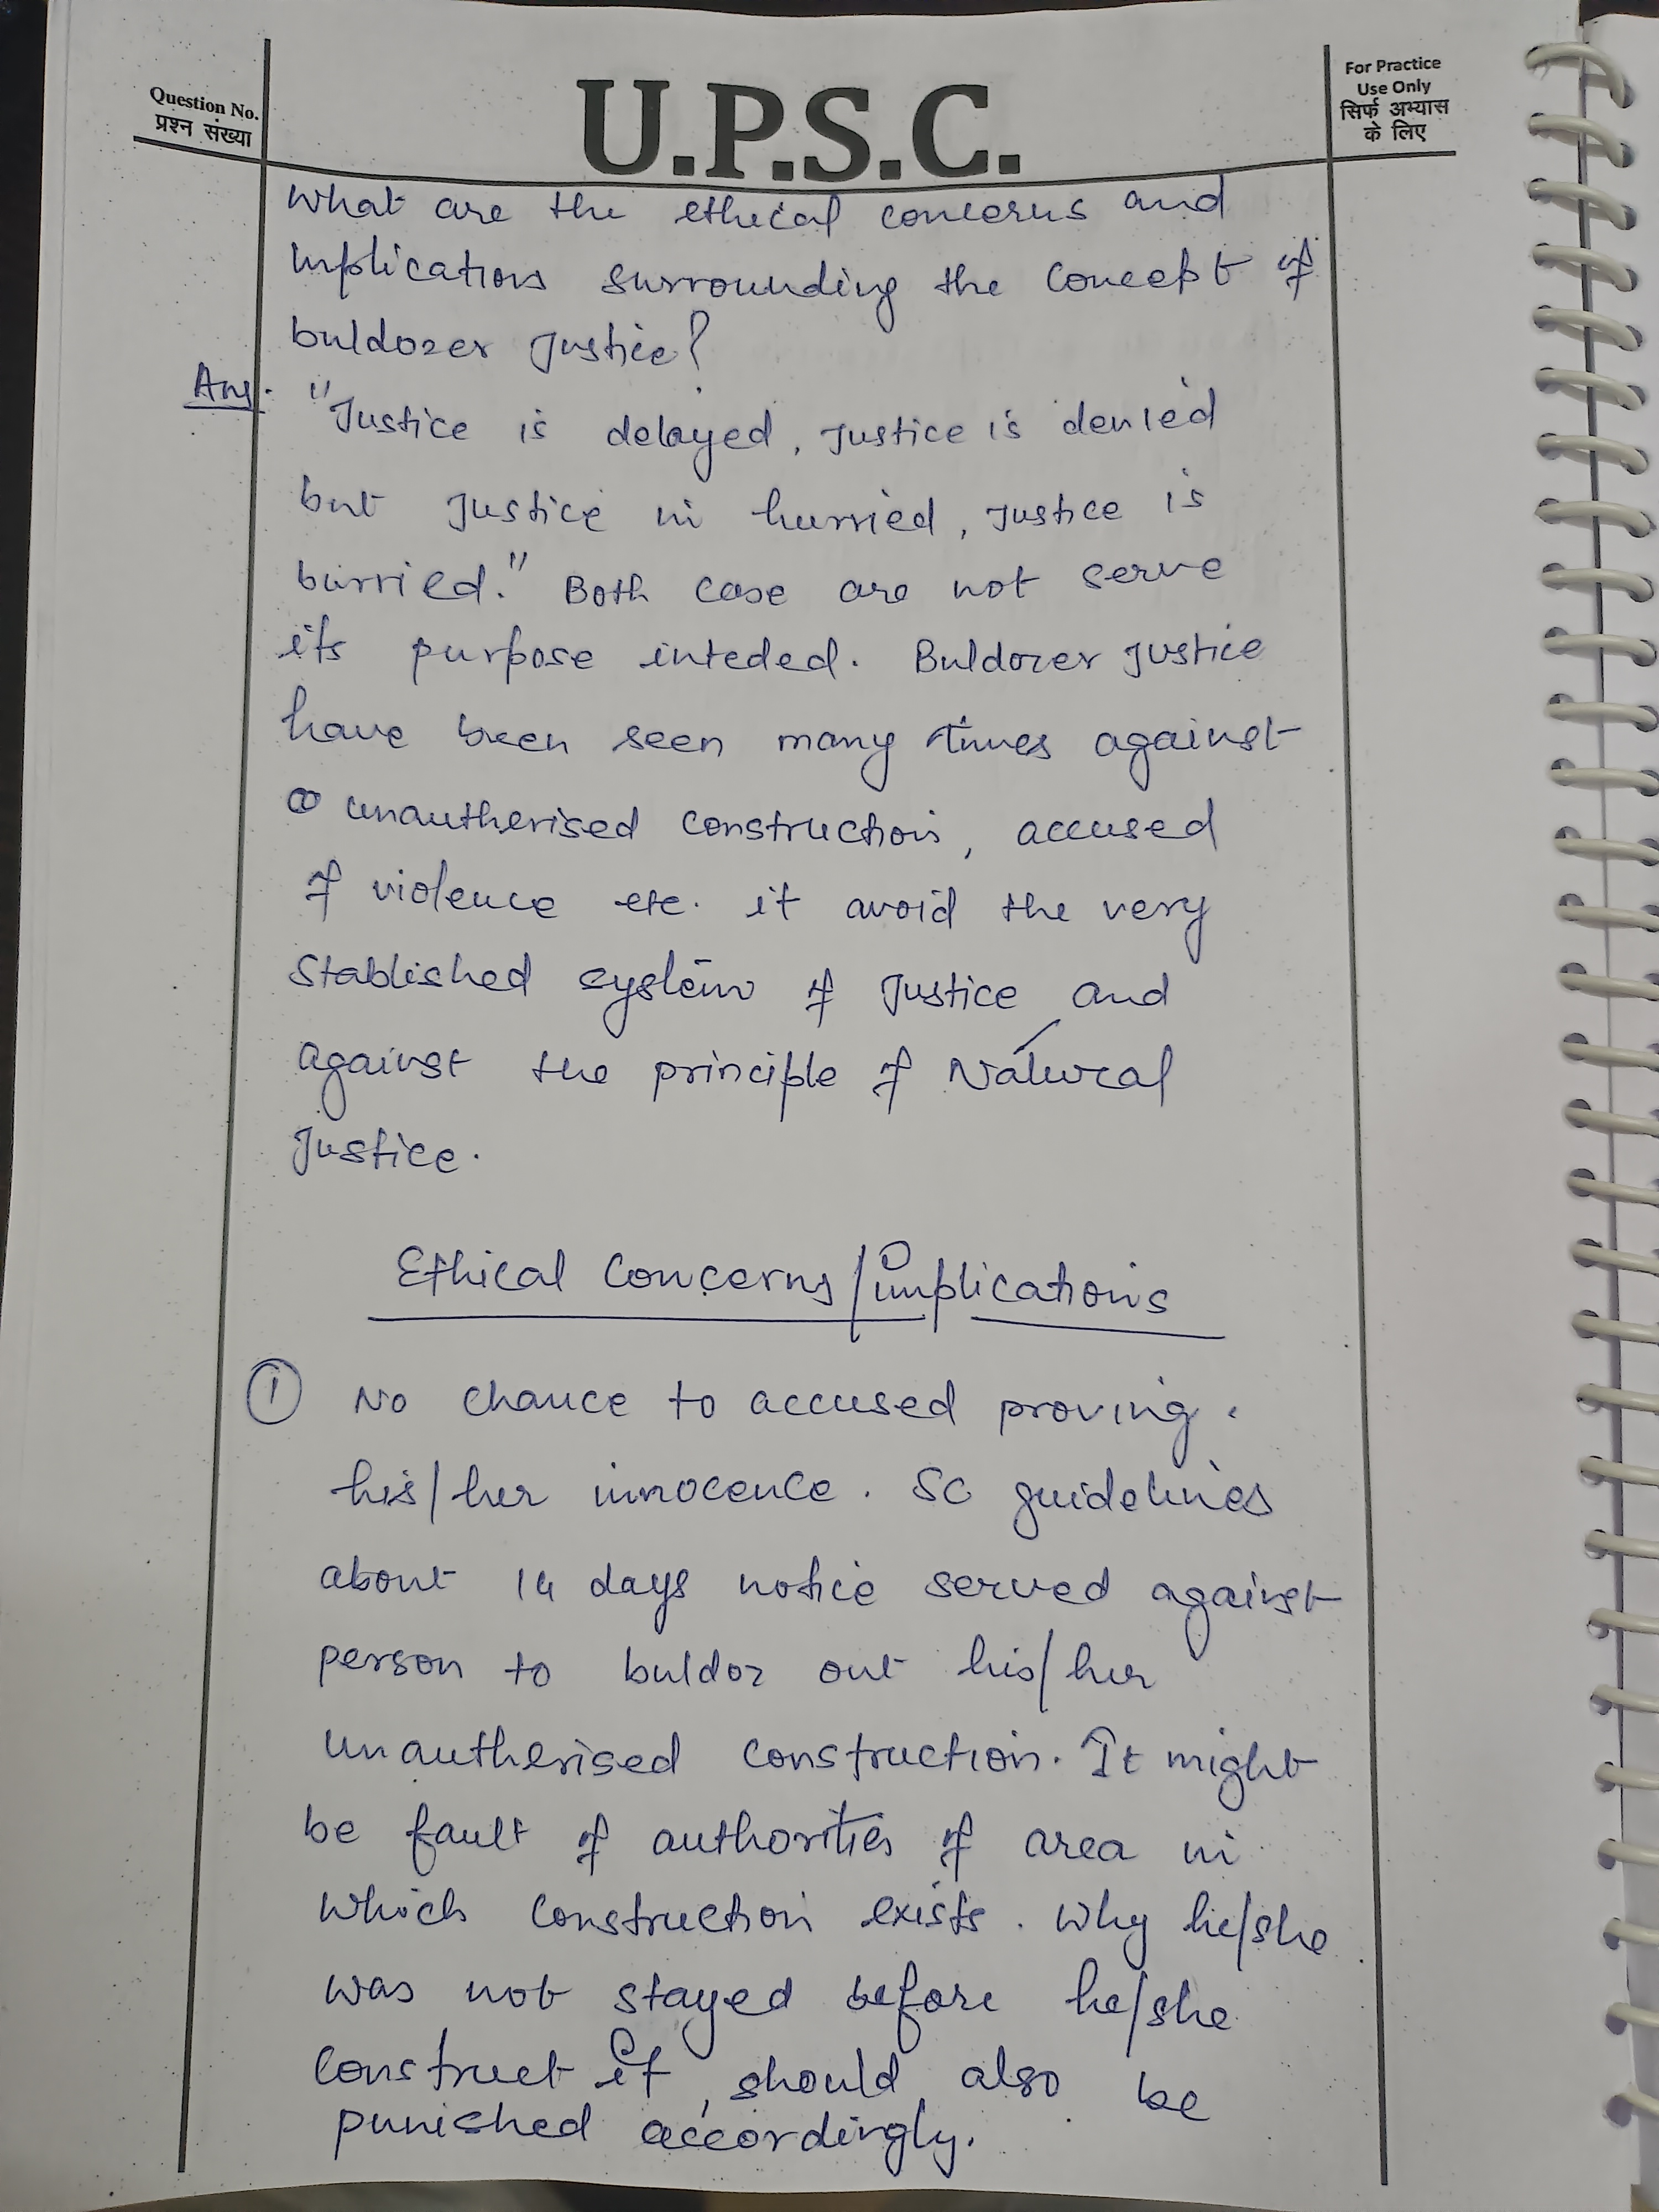 Question No.
प्रश्न संख्या
U.P.S.C.
For Practice
Use Only
सिर्फ अभ्यास
के लिए
What are the ethical concerns and
Implications surrounding the concept of
buldozer Justice?
Ans.
"Justice is delayed, Justice is denied
but Justice in hurried, Justice is
burried." Both case are not serve
its purpose inteded. Buldozer Justice
have been seen many times against
unautherised construction, accused
of violence etc. it avoid the very
Stablished system of Justice and
against the principle of Natural
Justice.
Ethical Concerns/implications
① No chance to accused proving
his/her innocence. SC guidelines
about 14 days notice served against
person to buldoz out his/her
unautherised construction. It might
be fault of authorities of area in
which construction exists. Why he/she
was not stayed before he/she
construct it, should also be
punished accordingly.